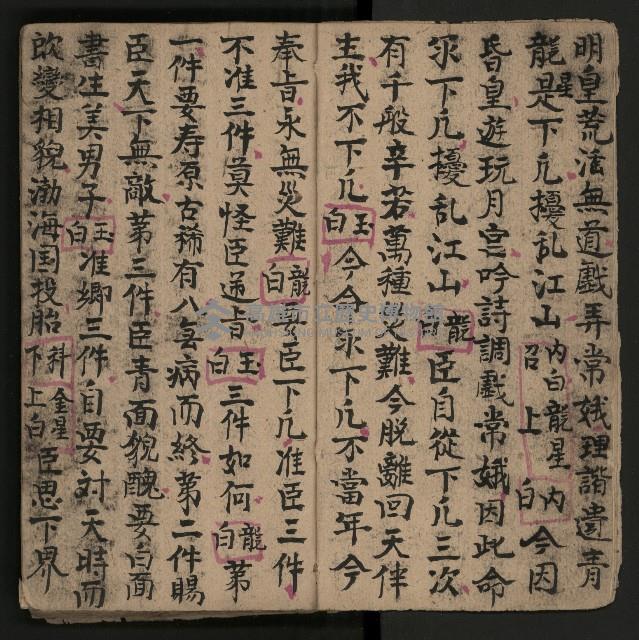 明皇荒淫無道戲弄常娥理諧遣青
龍星是下凢擾乱江山內白龍星內白召上今因
昏皇遊玩月宮吟詩調戲常娥因此命
尔下凢擾乱江山龍白臣自從下凢三次
有千般辛苦萬種災難今脱離回天伴
主我不下凢玉白今令尔下凢不當年今
奉旨永無災難龍白要臣下凢准臣三件
不准三件莫怪臣逆旨玉白三件如何龍白第
一件要寿原古稀有八無病而終第二件賜
臣天下無敵第三件臣青面貌醜要白面
書生美男子玉白准卿三件自要对天時而
欧變相貌渤海国投胎下科金星上白臣思下界
高雄市立歷史博物館